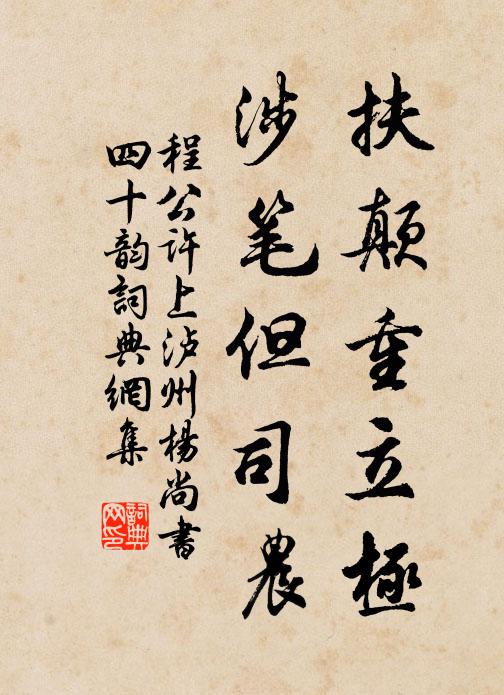 扶颠重立極
涉笔但司農
程公許上泸州楊尚書
四十韵詞典網集
詞典
网印